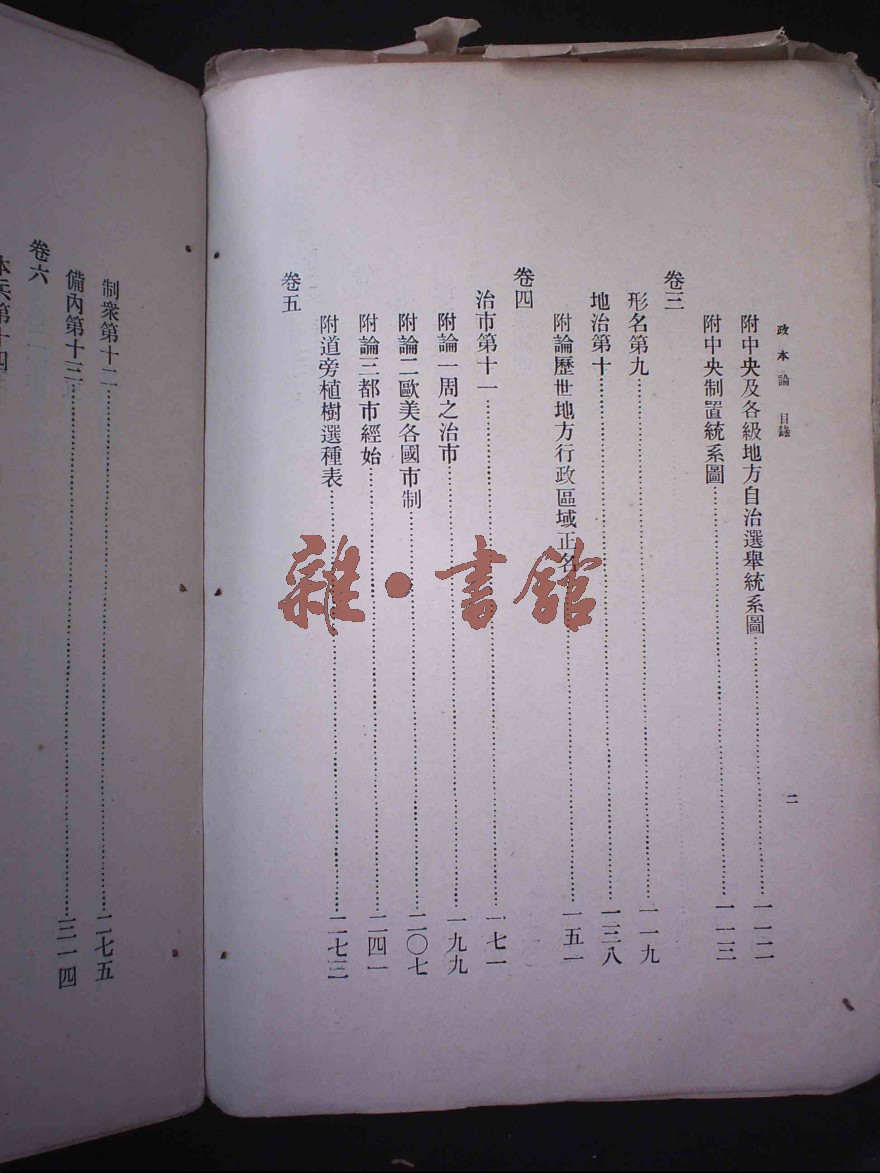 政本論　目錄
二
附中央及各級地方自治選舉統系圖……一一二
附中央制置統系圖……一一三
卷三
形名第九……一一九
地治第十……一三八
附論歷世地方行政區域正名……一五一
卷四
治市第十一……一七一
附論一周之治市……一九九
附論二歐美各國市制……二〇七
附論三都市經始……二四一
附道旁植樹選種表……二七三
卷五
制衆第十二……二七五
備內第十三……三一四
卷六
本兵第十四
雜·書館